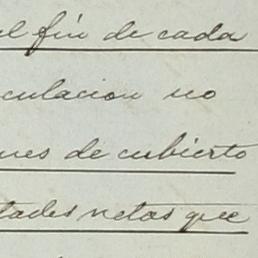 el fin de cada
culacion no
nes de cubierto
tades netas que